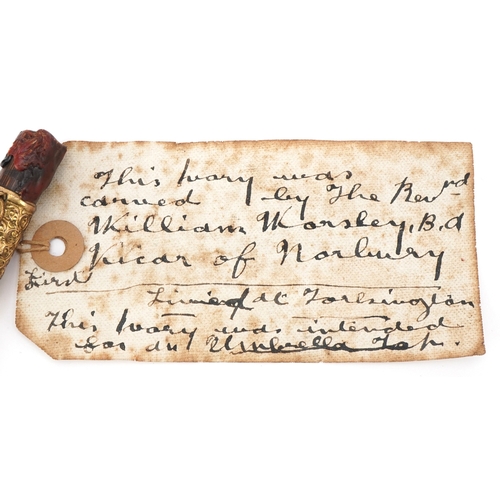 This Ivory was
carved by The Revrd
William Worsley, B.d
Vicar of Norbury
First
Lived at
This Ivory was intended
for an Umbrella Top.